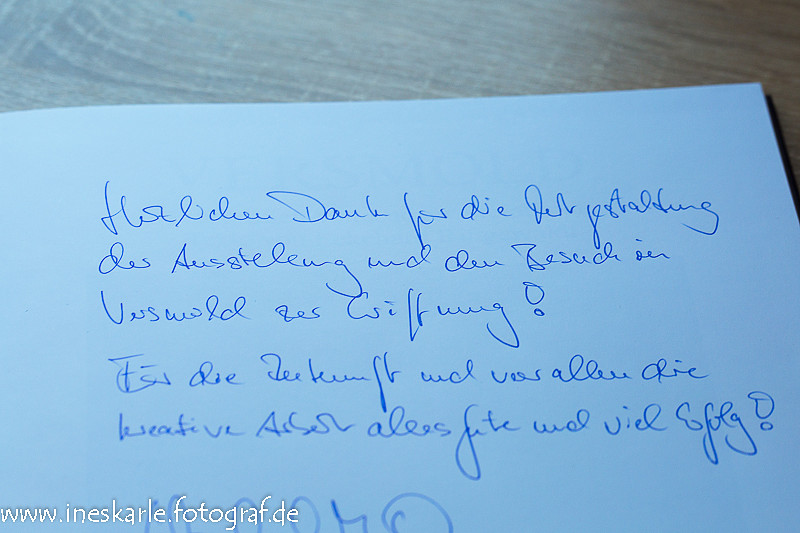 Herzlichen Dank für die Mitgestaltung
der Ausstellung und den Besuch in
Versmold zur Eröffnung!
Für die Zukunft und vor allem die
kreative Arbeit alles Gute und viel Erfolg!
www.ineskarle.fotograf.de